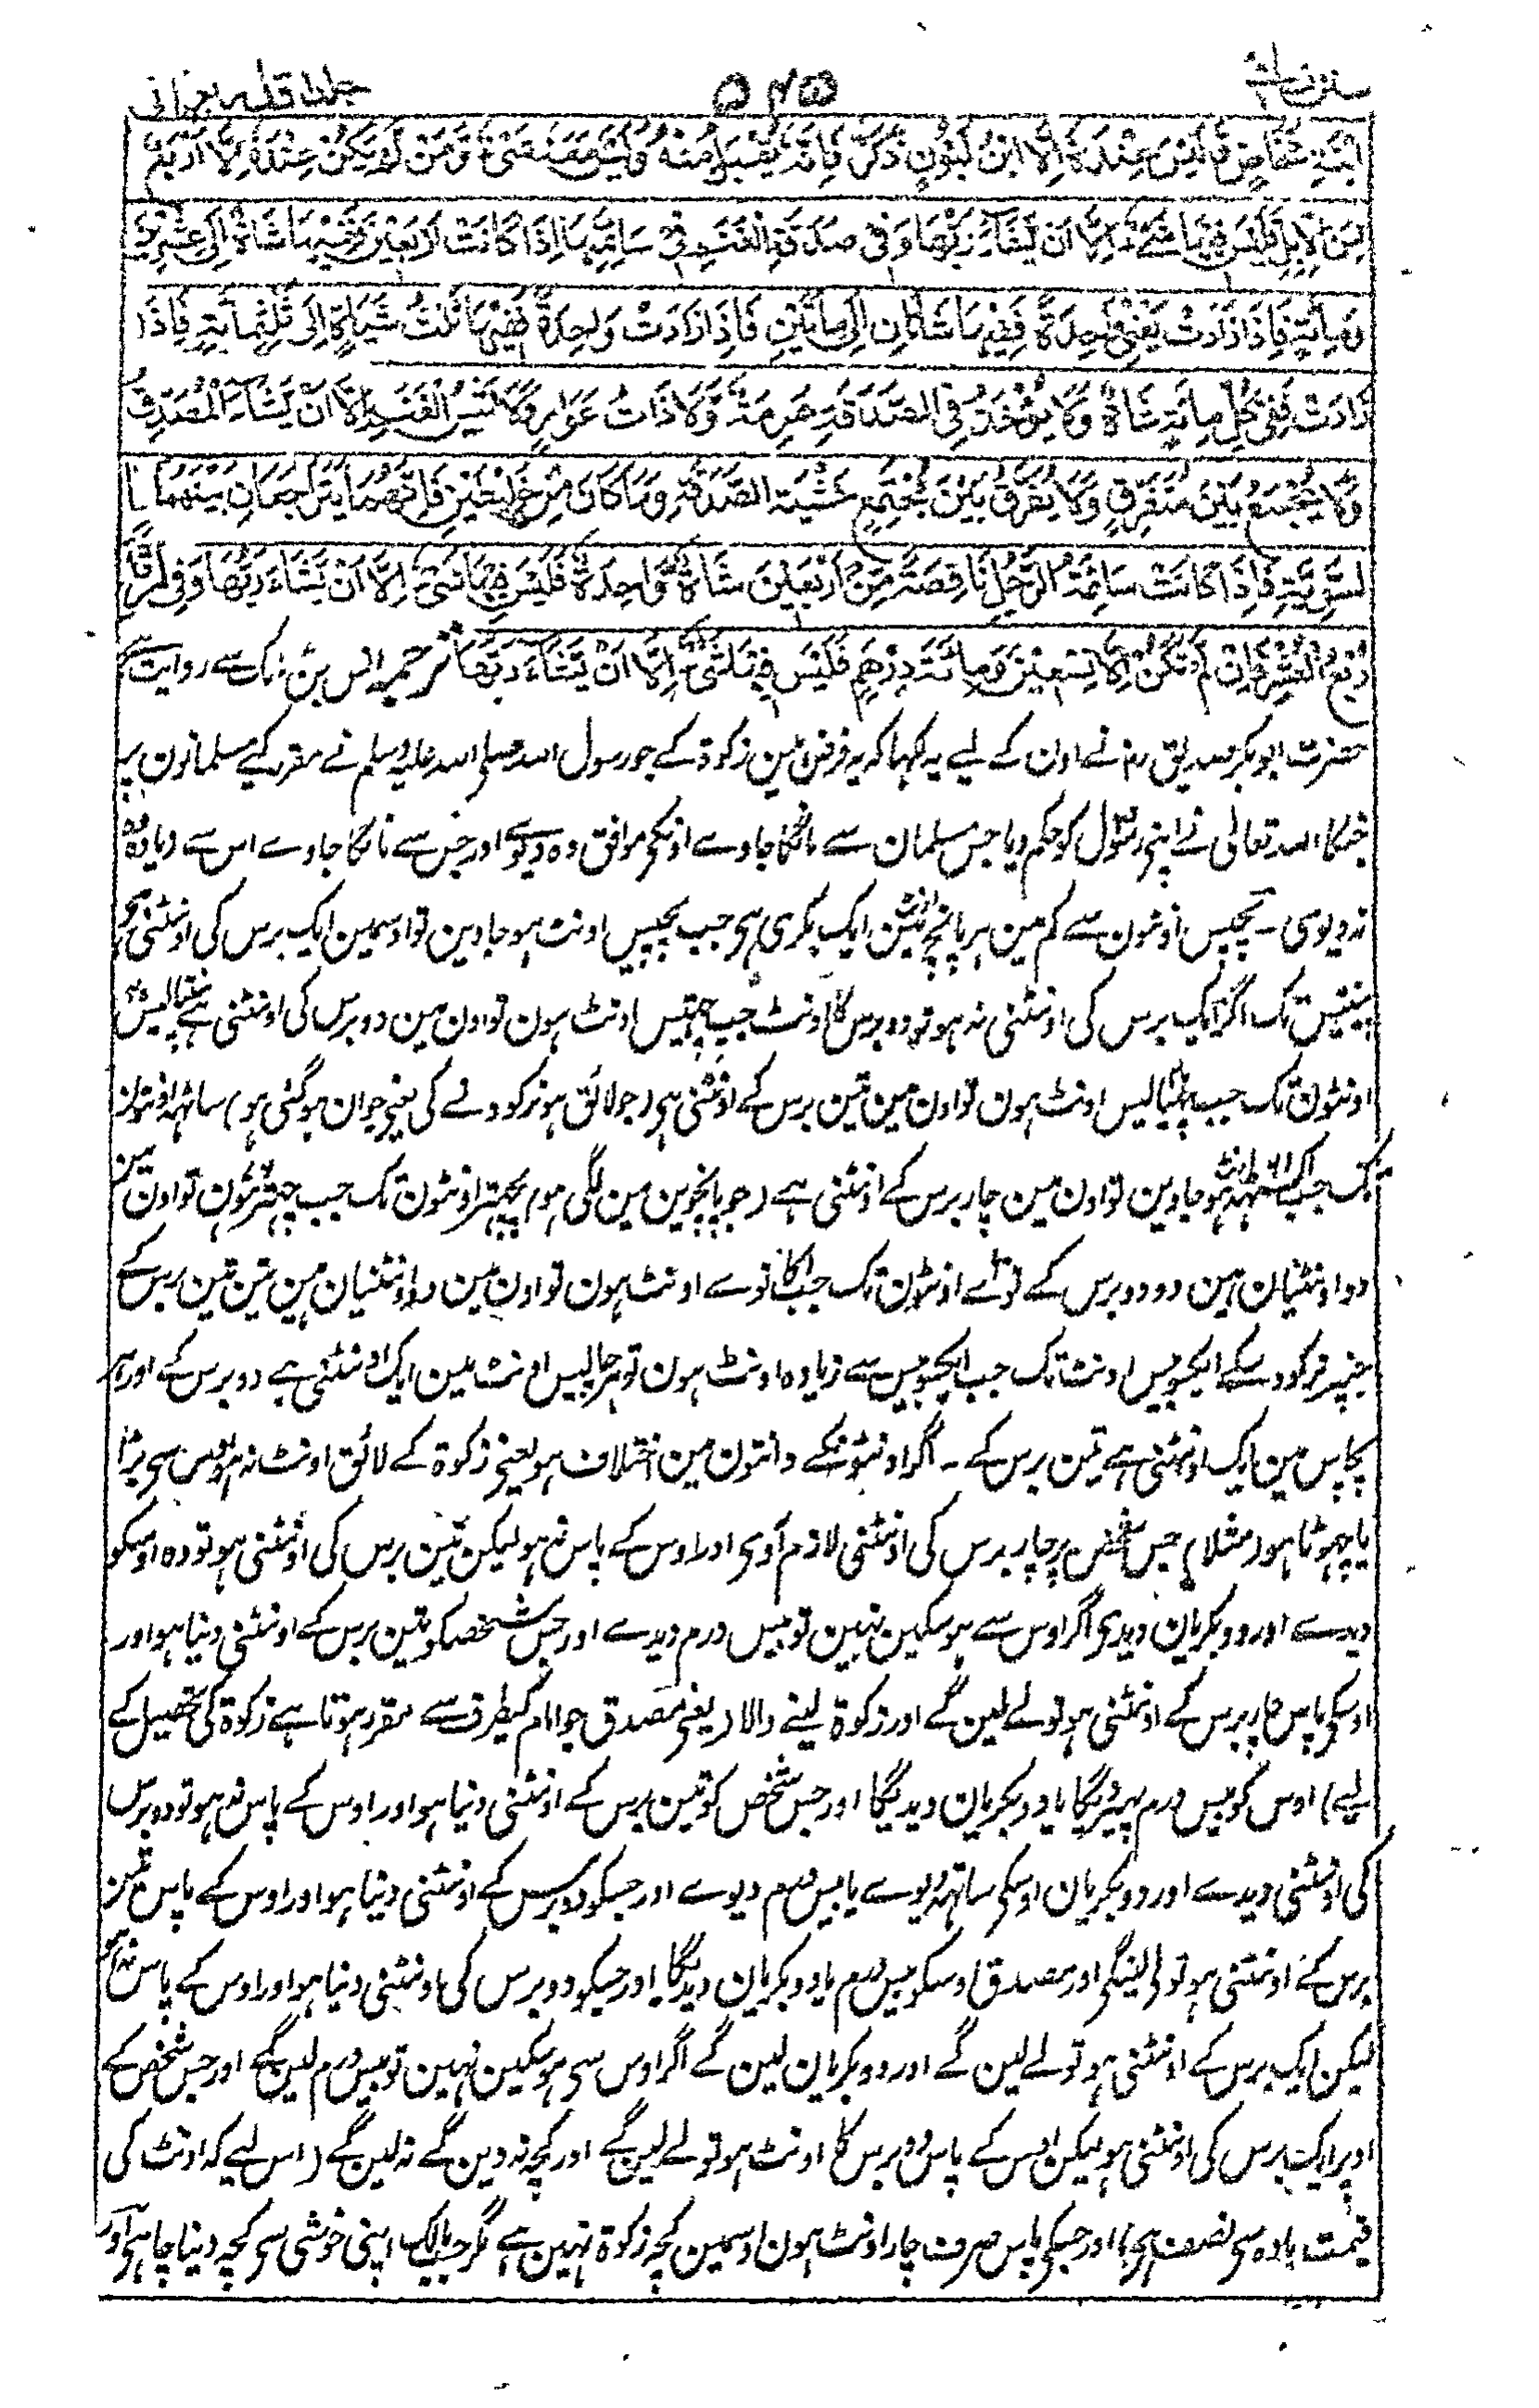 ۵۴۵
ابْنَةِ مَخَاضٍ وَلَيْسَ عِنْدَهُ إِلَّا ابْنُ لَبُونٍ ذَكَرٌ فَإِنَّهُ يُقْبَلُ مِنْهُ وَلَيْسَ مَعَهُ شَيْءٌ وَمَنْ لَمْ يَكُنْ عِنْدَهُ إِلَّا أَرْبَعٌ
مِنَ الْإِبِلِ فَلَيْسَ فِيهَا شَيْءٌ إِلَّا أَنْ يَشَاءَ رَبُّهَا وَفِي صَدَقَةِ الْغَنَمِ فِي سَائِمَتِهَا إِذَا كَانَتْ أَرْبَعِينَ فَفِيهَا شَاةٌ إِلَى عِشْرِينَ
وَمِائَةٍ فَإِذَا زَادَتْ يَعْنِي وَاحِدَةً فَفِيهَا شَاتَانِ إِلَى مِائَتَيْنِ فَإِذَا زَادَتْ وَاحِدَةً فَفِيهَا ثَلٰثُ شِيَاهٍ إِلَى ثَلٰثِمِائَةٍ فَإِذَا
زَادَتْ فَفِي كُلِّ مِائَةٍ شَاةٌ وَلَا يُؤْخَذُ فِي الصَّدَقَةِ هَرِمَةٌ وَلَا ذَاتُ عَوَارٍ وَلَا تَيْسُ الْغَنَمِ إِلَّا أَنْ يَشَاءَ الْمُصَدِّقُ
وَلَا يُجْمَعُ بَيْنَ مُتَفَرِّقٍ وَلَا يُفَرَّقُ بَيْنَ مُجْتَمِعٍ خَشْيَةَ الصَّدَقَةِ وَمَا كَانَ مِنْ خَلِيطَيْنِ فَإِنَّهُمَا يَتَرَاجَعَانِ بَيْنَهُمَا بِا
لسَّوِيَّةِ فَإِذَا كَانَتْ سَائِمَةُ الرَّجُلِ نَاقِصَةً مِنْ أَرْبَعِينَ شَاةً وَاحِدَةً فَلَيْسَ فِيهَا شَيْءٌ إِلَّا أَنْ يَشَاءَ رَبُّهَا وَفِي الرِّقَّةِ
رُبْعُ الْعُشْرِ فَإِنْ لَمْ تَكُنْ إِلَّا تِسْعِينَ وَمِائَةَ دِرْهَمٍ فَلَيْسَ فِيهِ شَيْءٌ إِلَّا أَنْ يَشَاءَ رَبُّهَا ترجمہ انس بن مالک سے روایت ہے
حضرت ابو بکر صدیق رضہ نے اون کے لیے یہ لکھا کہ یہ فرض ہین زکوۃ کے جو رسول اللہ صلی اللہ علیہ وسلم نے مقرر کیے مسلمانون پر
جنکا اللہ تعالی نے اپنے رسول کو حکم دیا جس مسلمان سے مانگا جاوے اونکے موافق وہ دیوے اور جس سے مانگا جاوے اس سے زیادہ وہ
نہ دیوی ۔ پچیس اونٹون سے کم مین ہر پانچ اونٹ مین ایک بکری ہی جب پچیس اونٹ ہو جاوین تو اوسمین ایک برس کی اونٹنی ہی
پینتیس تک اگر ایک برس کی اونٹنی نہ ہو تو دو برس کا اونٹ جب چھتیس اونٹ ہون تو اون مین دو برس کی اونٹنی ہے پینتالیس
اونٹون تک جب چھیالیس اونٹ ہون تو اون مین تین برس کے اونٹنی ہی (جو لائق ہو نر کودنے کی یعنی جوان ہو گئی ہو) ساٹھ اونٹون
تک جب اکسٹھ اونٹ ہو جاوین تو اون مین چار برس کے اونٹنی ہے (جو پانچوین مین لگی ہو) پچہتر اونٹون تک جب چھہتر ہون تو اون مین
دو اونٹنیان ہین دو دو برس کے نوے اونٹون تک جب اکانوے اونٹ ہون تو اون مین دو اونٹنیان ہین تین تین برس کے
جنپر نر کود سکے ایکسو بیس اونٹ تک جب ایکسو بیس سے زیادہ اونٹ ہون تو ہر چالیس اونٹ مین ایک اونٹنی ہے دو برس کے اور ہر
پچاس مین ایک اونٹنی ہے تین برس کے ۔ اگر اونٹونکے دانتون مین اختلاف ہو یعنے زکوۃ کے لائق اونٹ نہ ہو اوس سی بڑا
یا چہوٹا ہو (مثلا) جس شخص پر چار برس کی اونٹنی لازم آوی اور اوس کے پاس نہ ہو لیکن تین برس کی اونٹنی ہو تو وہ اوسکو
دیدے اور دو بکریان دیدی اگر اوس سے ہو سکین نہین تو بیس درم دیدے اور جس شخص کو تین برس کے اونٹنی دینا ہو اور
اوسکی پاس چار برس کے اونٹنی ہو تو لے لین گے اور زکوۃ لینے والا (یعنی مصدق جو امام کیطرف سے مقرر ہوتا ہے زکوۃ کی تحصیل کے
لیے) اوس کو بیس درم پھیر دیگا یا دو بکریان دیدیگا اور جس شخص کو تین برس کے اونٹنی دینا ہو اور اوس کے پاس نہ ہو تو دو برس
کی اونٹنی دیدے اور دو بکریان اوسکی ساتھ دیوے یا بیس درم دیوے اور جسکو دو برس کے اونٹنی دینا ہو اور اوس کے پاس تین
برس کے اونٹنی ہو تو لی لینگی اور مصدق اوسکو بیس درم یا دو بکریان دیدیگا اور جسکو دو برس کی اونٹنی دینا ہو اور اوس کے پاس نہ ہو
لیکن ایک برس کے اونٹنی ہو تو لے لین گے اور دو بکریان لین گے اگر اوس سی ہو سکین نہین تو بیس درم لین گے اور جس شخص کے
اوپر ایک برس کی اونٹنی ہو لیکن اوس کے پاس دو برس کا اونٹ ہو تو لے لین گے اور کچہ نہ دین گے نہ لین گے (اس لیے کہ اونٹ کی
قیمت مادہ سی نصف ہی) اور جسکی پاس صرف چار اونٹ ہون اوسمین کچہ زکوۃ نہین ہے مگر جب مالک اپنی خوشی سی کچہ دینا چاہی اور